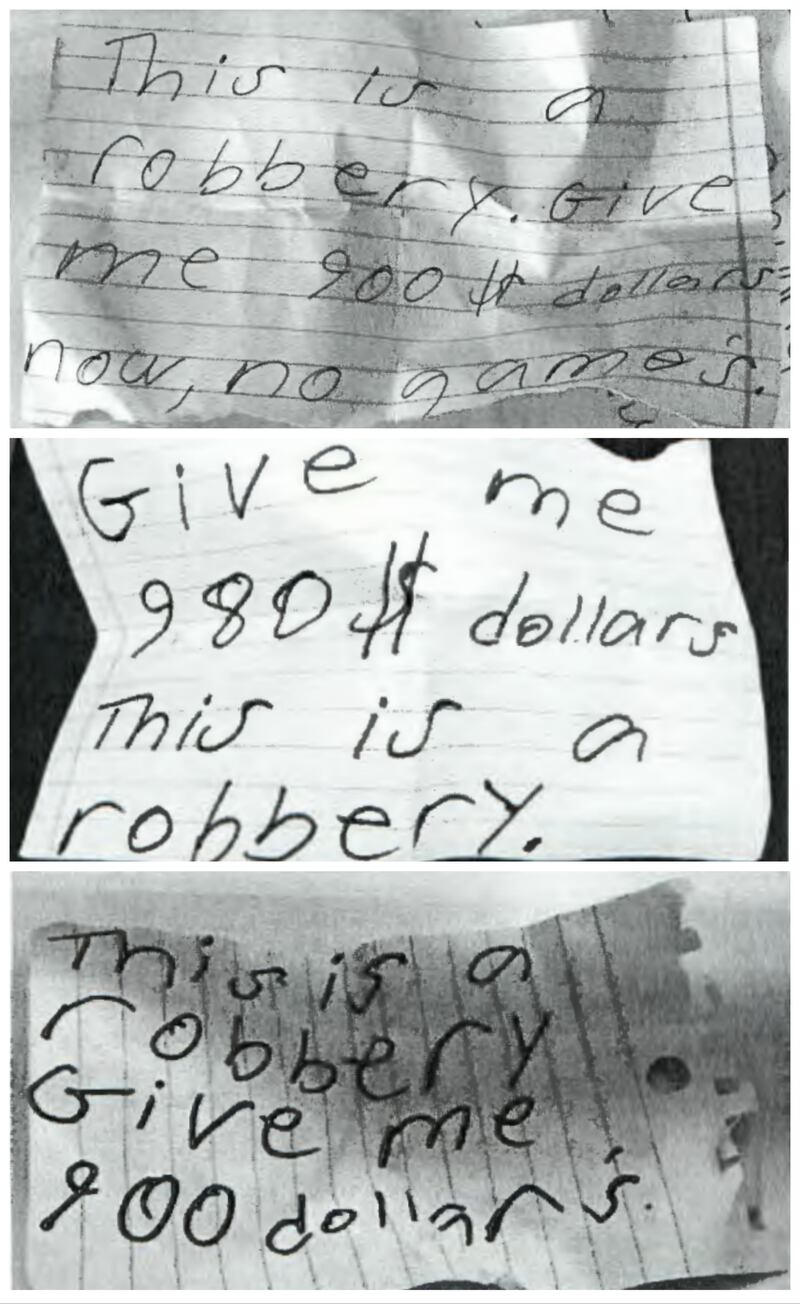 This is a
robbery. Give
me 900 $ dollars
now, no games.
Give me
980 $ dollars
This is a
robbery.
This is a
robbery
Give me
900 dollars.